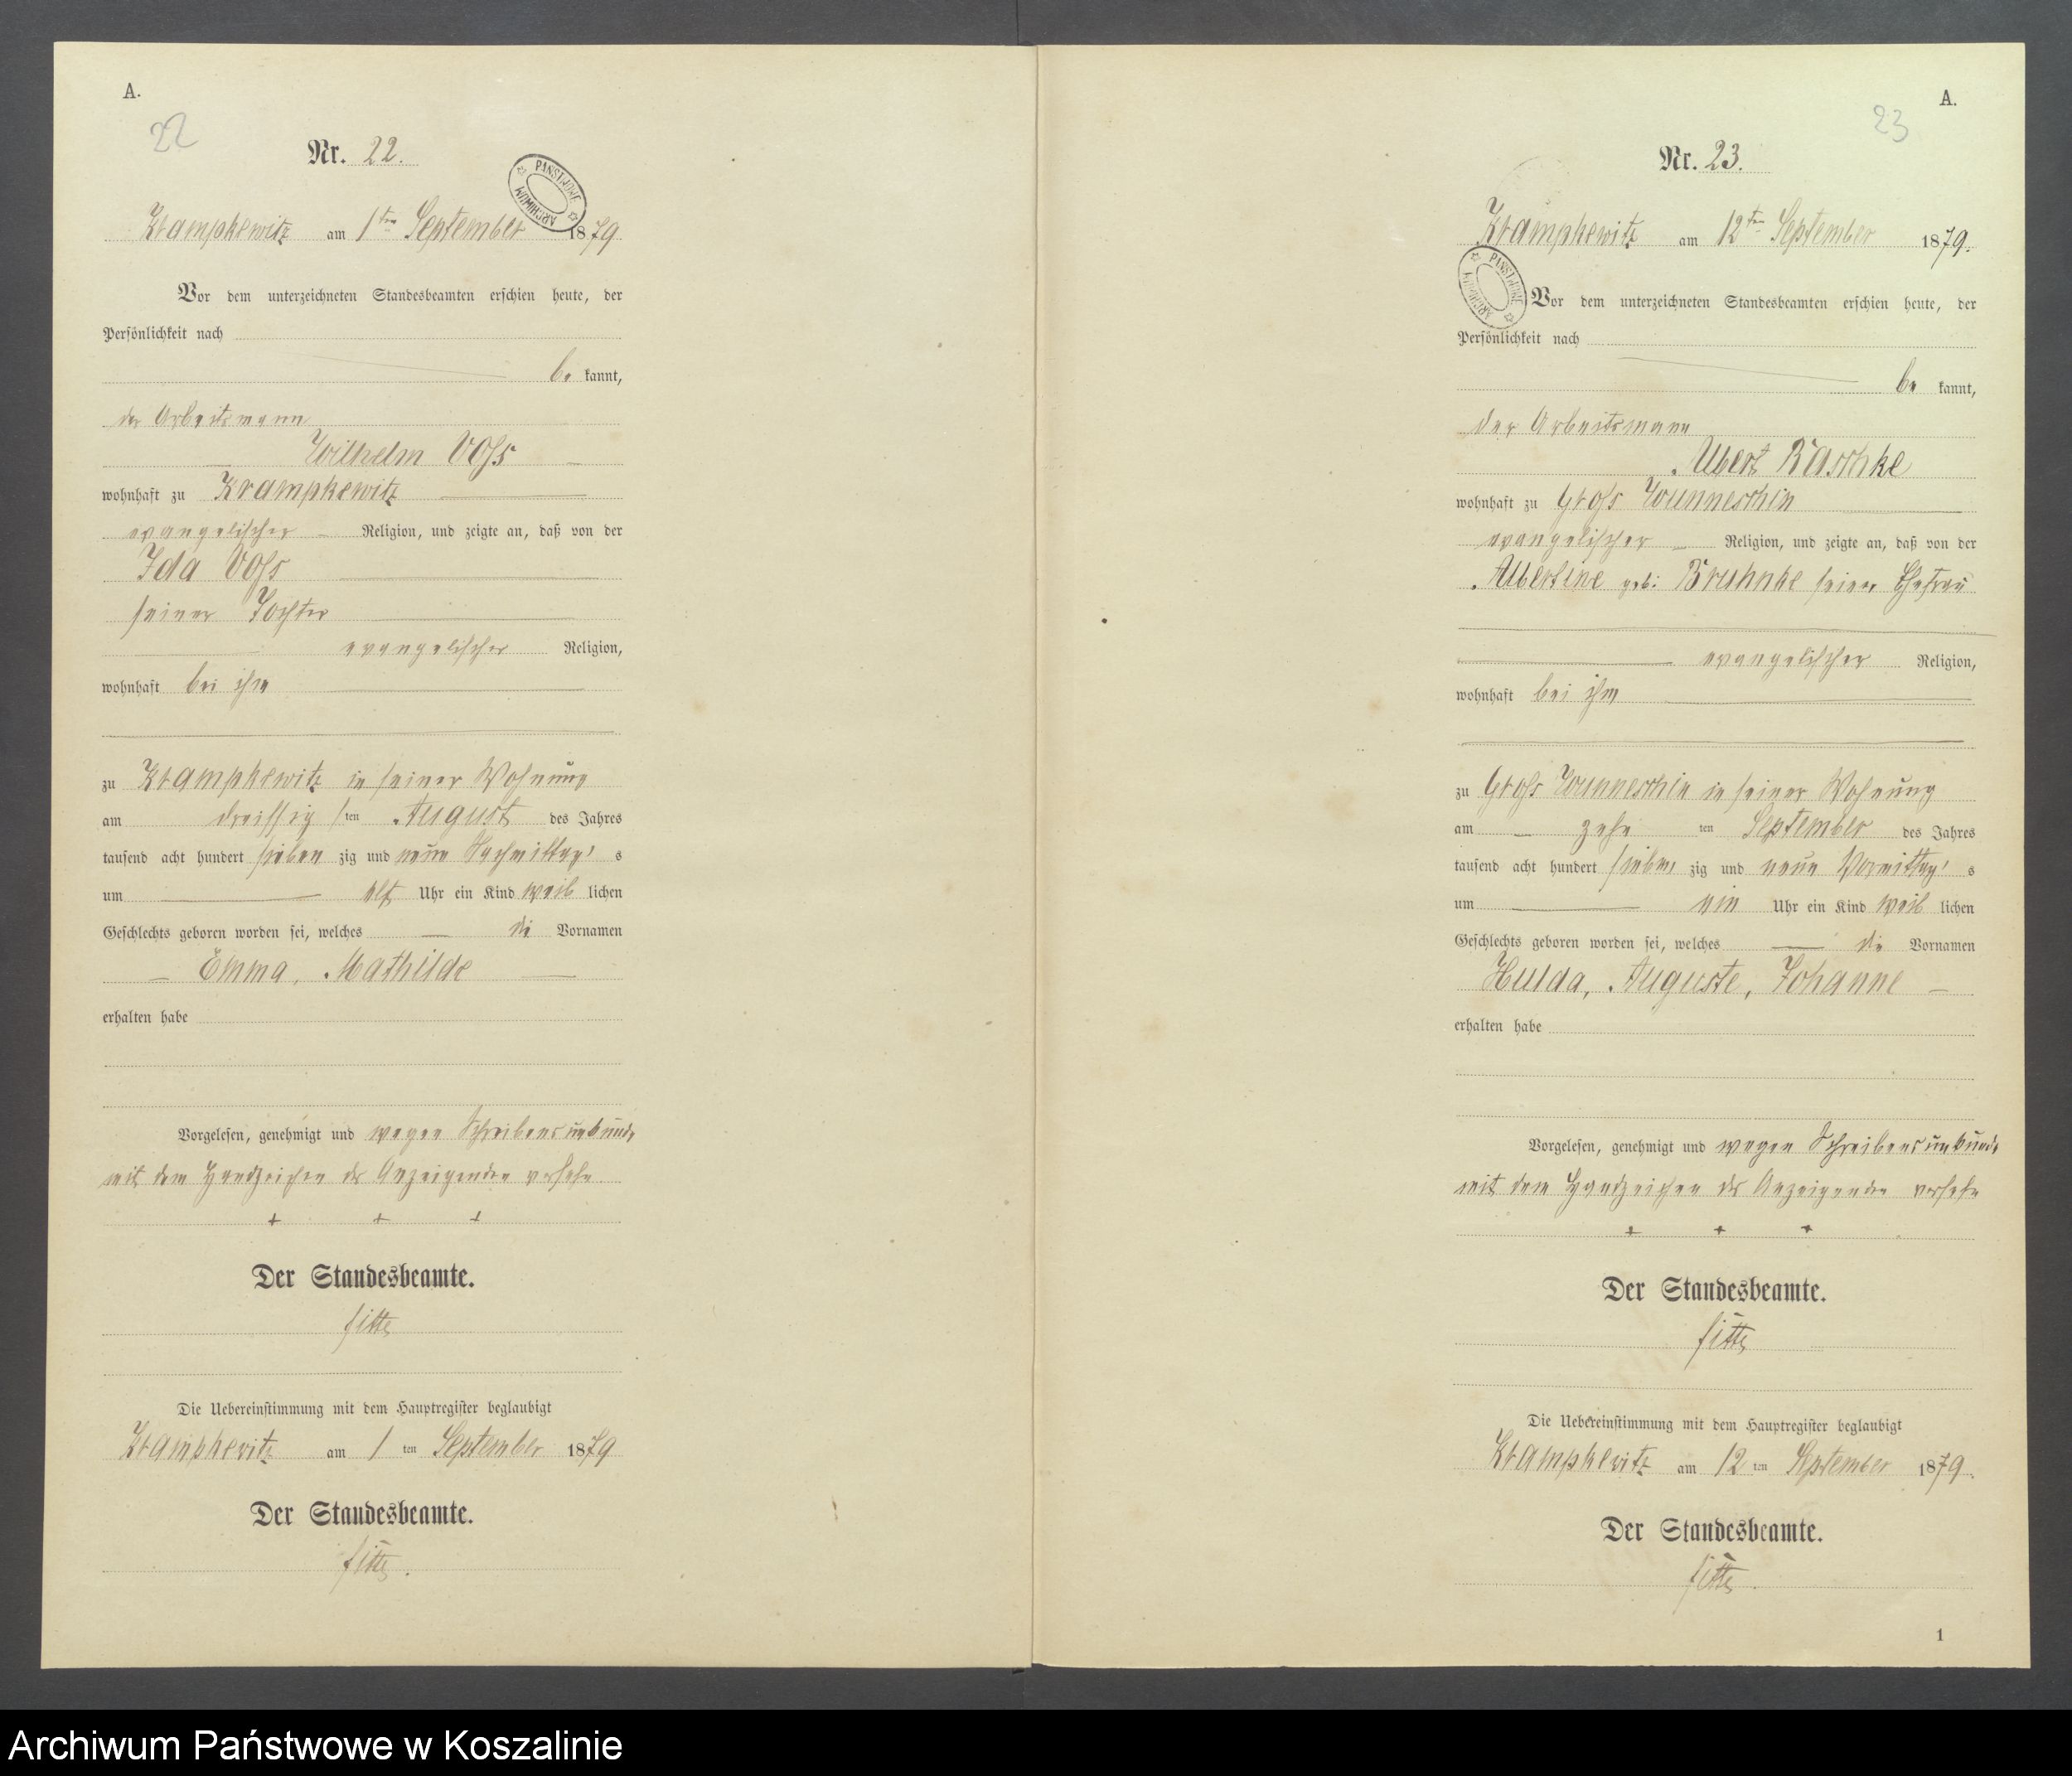 A.
22
Nr. 22.
PAŃSTWOWE ARCHIWUM
Krampkewitz am 1ten September 1879
Vor dem unterzeichneten Standesbeamten erschien heute, der
Persönlichkeit nach
be kannt,
der Arbeitsmann
Wilhelm Voss
wohnhaft zu Krampkewitz
evangelischer Religion, und zeigte an, daß von der
Ida Voss
seiner Tochter
evangelischer Religion,
wohnhaft bei ihm
zu Krampkewitz in seiner Wohnung
am dreissigsten August des Jahres
tausend acht hundert sieben zig und neun Nachmittags
um elf Uhr ein Kind weiblichen
Geschlechts geboren worden sei, welches die Vornamen
Emma, Mathilde
erhalten habe
Vorgelesen, genehmigt und wegen Schreibensunkunde
mit dem Handzeichen des Anzeigenden versehen
+ + +
Der Standesbeamte.
Die Uebereinstimmung mit dem Hauptregister beglaubigt
Krampkewitz am 1 ten September 1879
Der Standesbeamte.
A.
23
Nr. 23.
Krampkewitz am 12ten September 1879.
PAŃSTWOWE ARCHIWUM
Vor dem unterzeichneten Standesbeamten erschien heute, der
Persönlichkeit nach
be kannt,
der Arbeitsmann
Albert Raschke
wohnhaft zu Gross Wunneschin
evangelischer Religion, und zeigte an, daß von der
Albertine geb: Bruhnke seiner Ehefrau
evangelischer Religion,
wohnhaft bei ihm
zu Gross Wunneschin in seiner Wohnung
am zehn ten September des Jahres
tausend acht hundert sieben zig und neun Vormittags
um ein Uhr ein Kind weiblichen
Geschlechts geboren worden sei, welches die Vornamen
Hulda, Auguste, Johanne
erhalten habe
Vorgelesen, genehmigt und wegen Schreibensunkunde
mit dem Handzeichen des Anzeigenden versehen
+ + +
Der Standesbeamte.
Die Uebereinstimmung mit dem Hauptregister beglaubigt
Krampkewitz am 12 ten September 1879.
Der Standesbeamte.
1
Archiwum Państwowe w Koszalinie